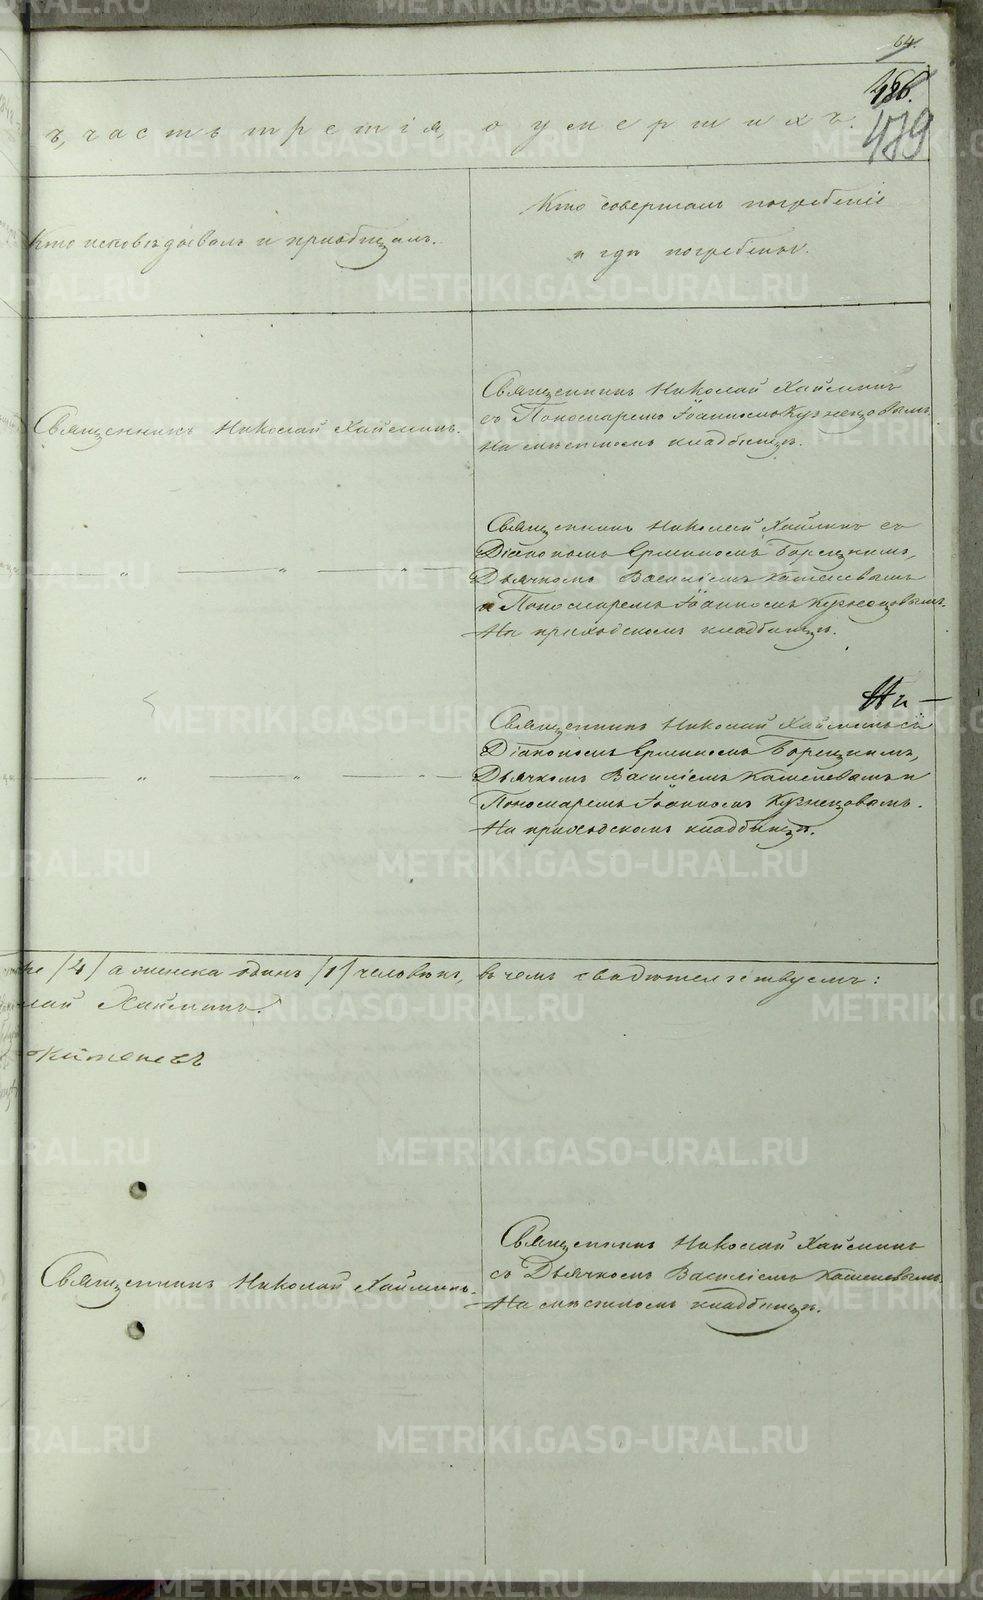 64.
186.
479
ъ, часть третія, о умершихъ.
Кто исповѣдывалъ и пріобщалъ.
Кто совершалъ погребеніе
и гдѣ погребены.
Священникъ Николай Хайминъ.
Священникъ Николай Хайминъ
съ Пономаремъ Іоанномъ Кузнецовымъ.
На мѣстномъ кладбищѣ.
Священникъ Николай Хайминъ съ
Діакономъ Ермиломъ Борецкимъ,
Дьячкомъ Василіемъ Кошелевымъ
и Пономаремъ Іоанномъ Кузнецовымъ.
На приходскомъ кладбищѣ.
— „ — „ — „ —
Священникъ Николай Хайминъ съ
Діакономъ Ермиломъ Борецкимъ,
Дьячкомъ Василіемъ Кошелевымъ и
Пономаремъ Іоанномъ Кузнецовымъ.
На приходскомъ кладбищѣ.
— „ — „ — „ —
/4/ а женска одинъ /1/ человѣкъ, въ чемъ свидѣтельствуемъ:
лай Хайминъ.
Священникъ Николай Хайминъ.
Священникъ Николай Хайминъ
съ Дьячкомъ Василіемъ Кошелевымъ.
На мѣстномъ кладбищѣ.
METRIKI.GASO-URAL.RU